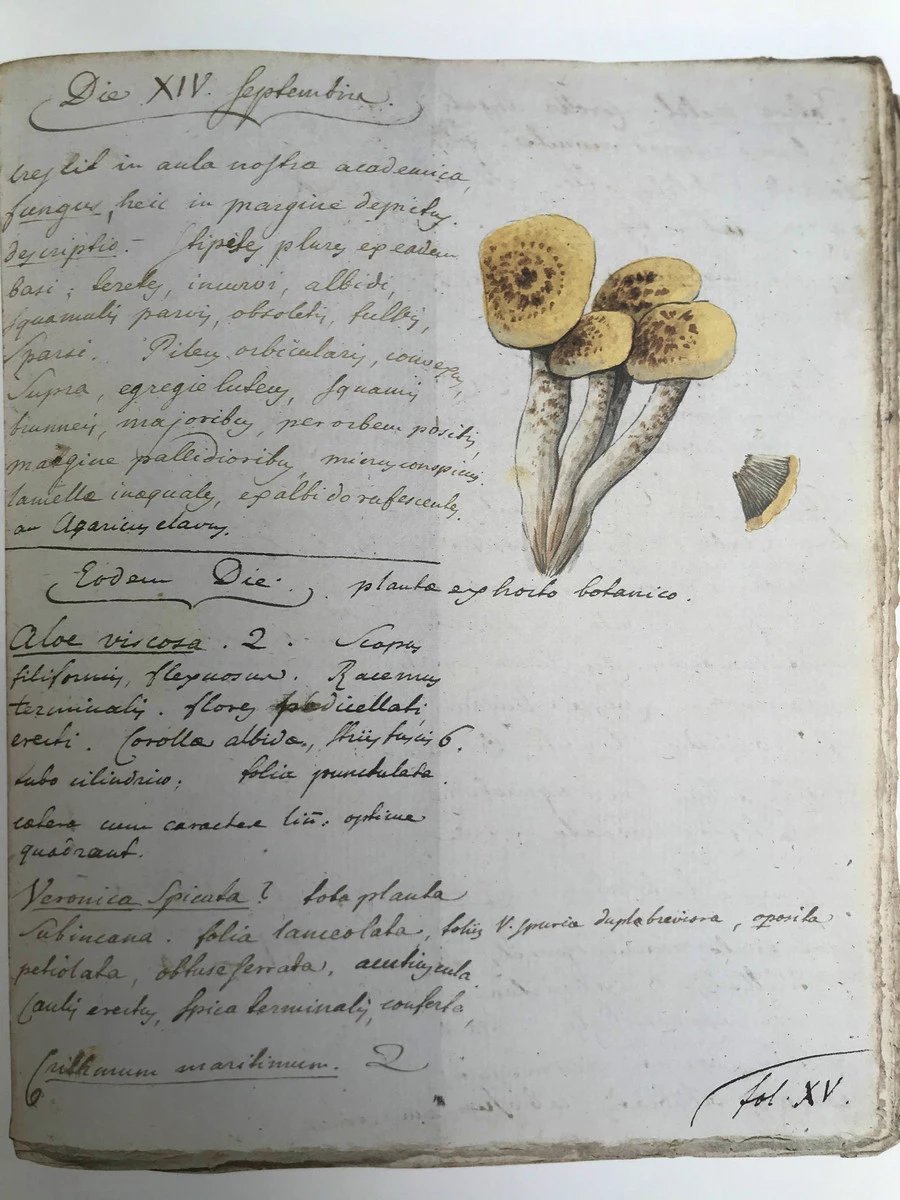 Die XIV. Septembris.
Crescit in aula nostra academica,
fungus, heic in margine depictus.
descriptio.- Stipites plures ex eadem
basi; teretes, incurvi, albidi,
squamulis parvis, obsoletis, fulvis,
Sparsi. Pileus orbicularis, convexus,
Supra, egregie luteus, squamis
brunneis, majoribus, per orbem positis,
margine pallidioribus, minus conspicuis.
lamellæ inæquales, ex albido rufescentes,
an Agaricus clavus.
Eodem Die. plantæ ex horto botanico.
Aloe viscosa. 2. Scapus
filiformis, flexuosus. Racemus
terminalis. flores pedicellati,
erecti. Corollæ albidæ, striis fuscis 6.
tubo cilindrico; folia punctulata.
cætera cum caractere Lin̄: optime
quadrant.
Veronica Spicata? tota planta
Subincana. folia lanceolata, foliis V. spuriæ duplo breviora, oposita
petiolata, obtuse serrata, acutiuscula
Caulis erectus, spica terminalis, conferta,
Crithmum maritimum. 2
fol. XV.